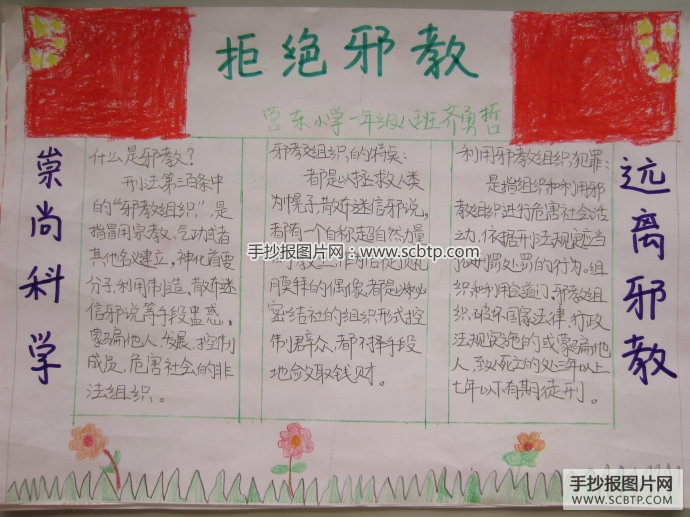 拒绝邪教
营东小学一年级八班齐勇哲
崇尚科学
什么是邪教?
刑法第三百条中
的“邪教组织”,是
指冒用宗教、气功或者
其他名义建立,神化首要
分子,利用制造、散布迷
信邪说等手段蛊惑、
蒙骗他人,发展、控制
成员,危害社会的非
法组织。
邪教组织的特点:
都是以拯救人类
为幌子,散布迷信邪说。
都有一个自称超自然力量
信徒顶礼
膜拜的偶像,都是以秘
密结社的组织形式控
制群众,都不择手段
地敛取钱财。
利用邪教组织犯罪:
是指组织和利用邪
教组织进行危害社会活
动,依据刑法规定应当
处罚的行为。组
织和利用会道门、邪教组
织,破坏国家法律、行政
法规实施的或蒙骗他
人,致人死亡的处三年以上
七年以下有期徒刑。
远离邪教
手抄报图片网:www.scbtp.com
手抄报图片网
WWW.SCBTP.COM